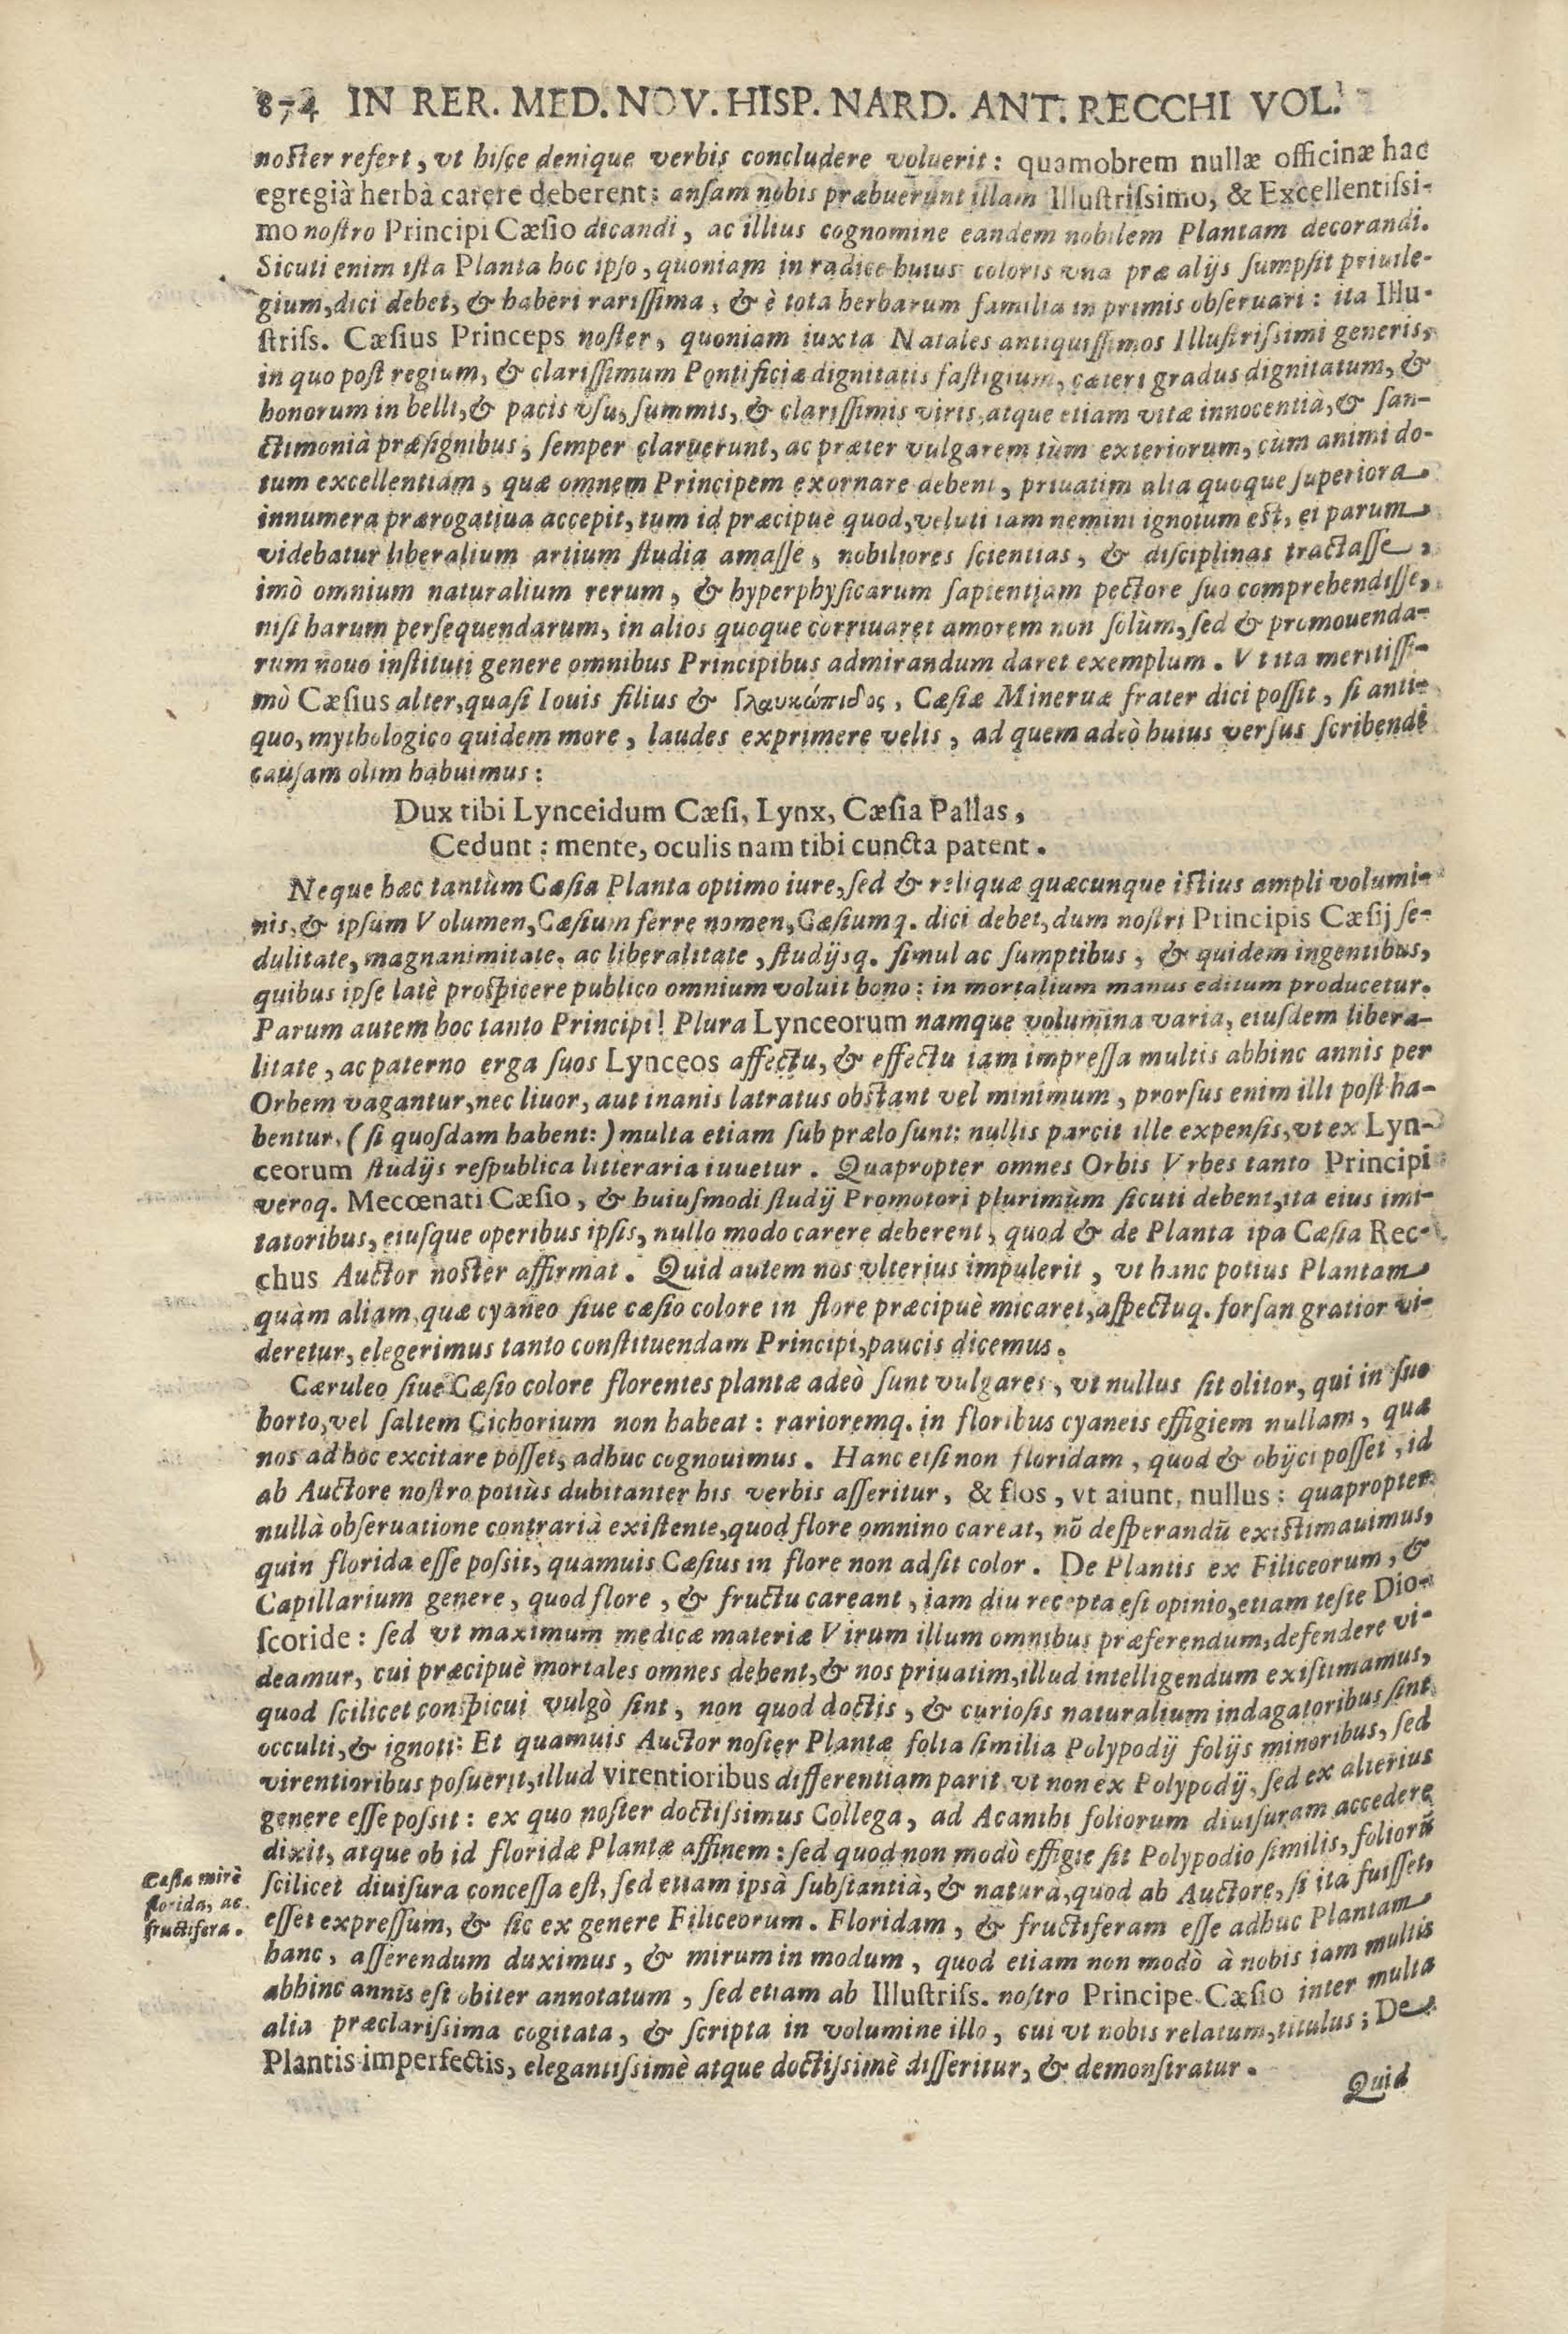 874 IN RER. MED. NOV. HISP. NARD. ANT. RECCHI VOL.
noſter refert, vt hiſce denique verbis concludere voluerit: quamobrem nullæ officinæ hac
egregià herbà carere deberent: anſam nobis præbuerunt illam Illuſtriſsimo, & Excellentiſsi-
mo noſtro Principi Cæſio dicandi, ac illius cognomine eandem nobilem Plantam decorandi.
Sicuti enim iſta Planta hoc ipſo, quoniam in radice huius coloris vna præ alijs ſumpſit priuile-
gium, dici debet, & haberi rariſſima, & è tota herbarum familia in primis obſeruari: ita Illu-
ſtriſs. Cæſius Princeps noſter, quoniam iuxta Natales antiquiſſimos Illuſtriſsimi generis,
in quo poſt regium, & clariſſimum Pontificiæ dignitatis faſtigium, cæteri gradus dignitatum, &
honorum in belli, & pacis vſu, ſummis, & clariſſimis viris, atque etiam vitæ innocentià, & ſan-
ctimonià præſignibus, ſemper claruerunt, ac præter vulgarem tùm exteriorum, cùm animi do-
tum excellentiam, quæ omnem Principem exornare debent, priuatim alia quoque ſuperiora
innumera prærogatiua accepit, tum id præcipuè quod, veluti iam nemini ignotum eſt, ei parum
videbatur liberalium artium ſtudia amaſſe, nobiliores ſcientias, & diſciplinas tractaſſe,
imò omnium naturalium rerum, & hyperphyſicarum ſapientiam pectore ſuo comprehendiſſe,
niſi harum perſequendarum, in alios quoque corriuaret amorem non ſolùm, ſed & promouenda-
rum nouo inſtituti genere omnibus Principibus admirandum daret exemplum. Vt ita meritiſſi-
mò Cæſius alter, quaſi Iouis filius & Γλαυκώπιδος, Cæſiæ Mineruæ frater dici poſſit, ſi anti-
quo, mythologico quidem more, laudes exprimere velis, ad quem adeò huius verſus ſcribendi
cauſam olim habuimus:
Dux tibi Lynceidum Cæſi, Lynx, Cæſia Pallas,
Cedunt: mente, oculis nam tibi cuncta patent.
Neque hæc tantùm Cæſia Planta optimo iure, ſed & reliquæ quæcunque iſtius ampli volumi-
nis, & ipſum Volumen, Cæſium ferre nomen, Cæſiumq. dici debet, dum noſtri Principis Cæſij ſe-
dulitate, magnanimitate, ac liberalitate, ſtudijsq. ſimul ac ſumptibus, & quidem ingentibus,
quibus ipſe latè proſpicere publico omnium voluit bono: in mortalium manus editum producetur.
Parum autem hoc tanto Principi! Plura Lynceorum namque volumina varia, eiuſdem libera-
litate, ac paterno erga ſuos Lynceos affectu, & effectu iam impreſſa multis abhinc annis per
Orbem vagantur, nec liuor, aut inanis latratus obſtant vel minimum, prorſus enim illi poſt ha-
bentur, (ſi quoſdam habent:) multa etiam ſub prælo ſunt: nullis parcit ille expenſis, vt ex Lyn-
ceorum ſtudijs reſpublica litteraria iuuetur. Quapropter omnes Orbis Vrbes tanto Principi
veroq. Mecœnati Cæſio, & huiuſmodi ſtudij Promotori plurimùm ſicuti debent, ita eius imi-
tatoribus, eiuſque operibus ipſis, nullo modo carere deberent, quod & de Planta ipa Cæſia Rec-
chus Auctor noſter affirmat. Quid autem nos vlterius impulerit, vt hanc potius Plantam
quàm aliam, quæ cyaneo ſiue cæſio colore in flore præcipuè micaret, aſpectuq. forſan gratior vi-
deretur, elegerimus tanto conſtituendam Principi, paucis dicemus.
Cæruleo ſiue Cæſio colore florentes plantæ adeò ſunt vulgares, vt nullus ſit olitor, qui in ſuo
horto, vel ſaltem Cichorium non habeat: rarioremq. in floribus cyaneis effigiem nullam, quæ
nos ad hoc excitare poſſet, adhuc cognouimus. Hanc etſi non floridam, quod & obijci poſſet, id
ab Auctore noſtro potiùs dubitanter his verbis aſſeritur, & flos, vt aiunt, nullus: quapropter
nullà obſeruatione contrarià exiſtente, quod flore omnino careat, nō deſperandū exiſtimauimus,
quin florida eſſe poſsit, quamuis Cæſius in flore non adſit color. De Plantis ex Filiceorum, &
Capillarium genere, quod flore, & fructu careant, iam diu recepta eſt opinio, etiam teſte Dio-
ſcoride: ſed vt maximum medicæ materiæ Virum illum omnibus præferendum, defendere vi-
deamur, cui præcipuè mortales omnes debent, & nos priuatim, illud intelligendum exiſtimamus,
quod ſcilicet conſpicui vulgò ſint, non quod doctis, & curioſis naturalium indagatoribus ſint
occulti, & ignoti: Et quamuis Auctor noſter Plantæ folia ſimilia Polypodij folijs minoribus, ſed
virentioribus poſuerit, illud virentioribus differentiam parit, vt non ex Polypodij, ſed ex alterius
genere eſſe poſsit: ex quo noſter doctiſsimus Collega, ad Acanthi foliorum diuiſuram accedere
dixit, atque ob id floridæ Plantæ affinem: ſed quod non modò effigie ſit Polypodio ſimilis, foliorū
ſcilicet diuiſura conceſſa eſt, ſed etiam ipsà ſubſtantià, & naturà, quod ab Auctore, ſi ita fuiſſet,
eſſet expreſſum, & ſic ex genere Filiceorum. Floridam, & fructiferam eſſe adhuc Plantam
hanc, aſſerendum duximus, & mirum in modum, quod etiam non modò à nobis iam multis
abhinc annis eſt obiter annotatum, ſed etiam ab Illuſtriſs. noſtro Principe Cæſio inter multa
alia præclariſsima cogitata, & ſcripta in volumine illo, cui vt nobis relatum, titulus; De
Plantis imperfectis, elegantiſsimè atque doctiſsimè diſſeritur, & demonſtratur.
Cæſia mirè
florida, ac
fructifera.
Quid